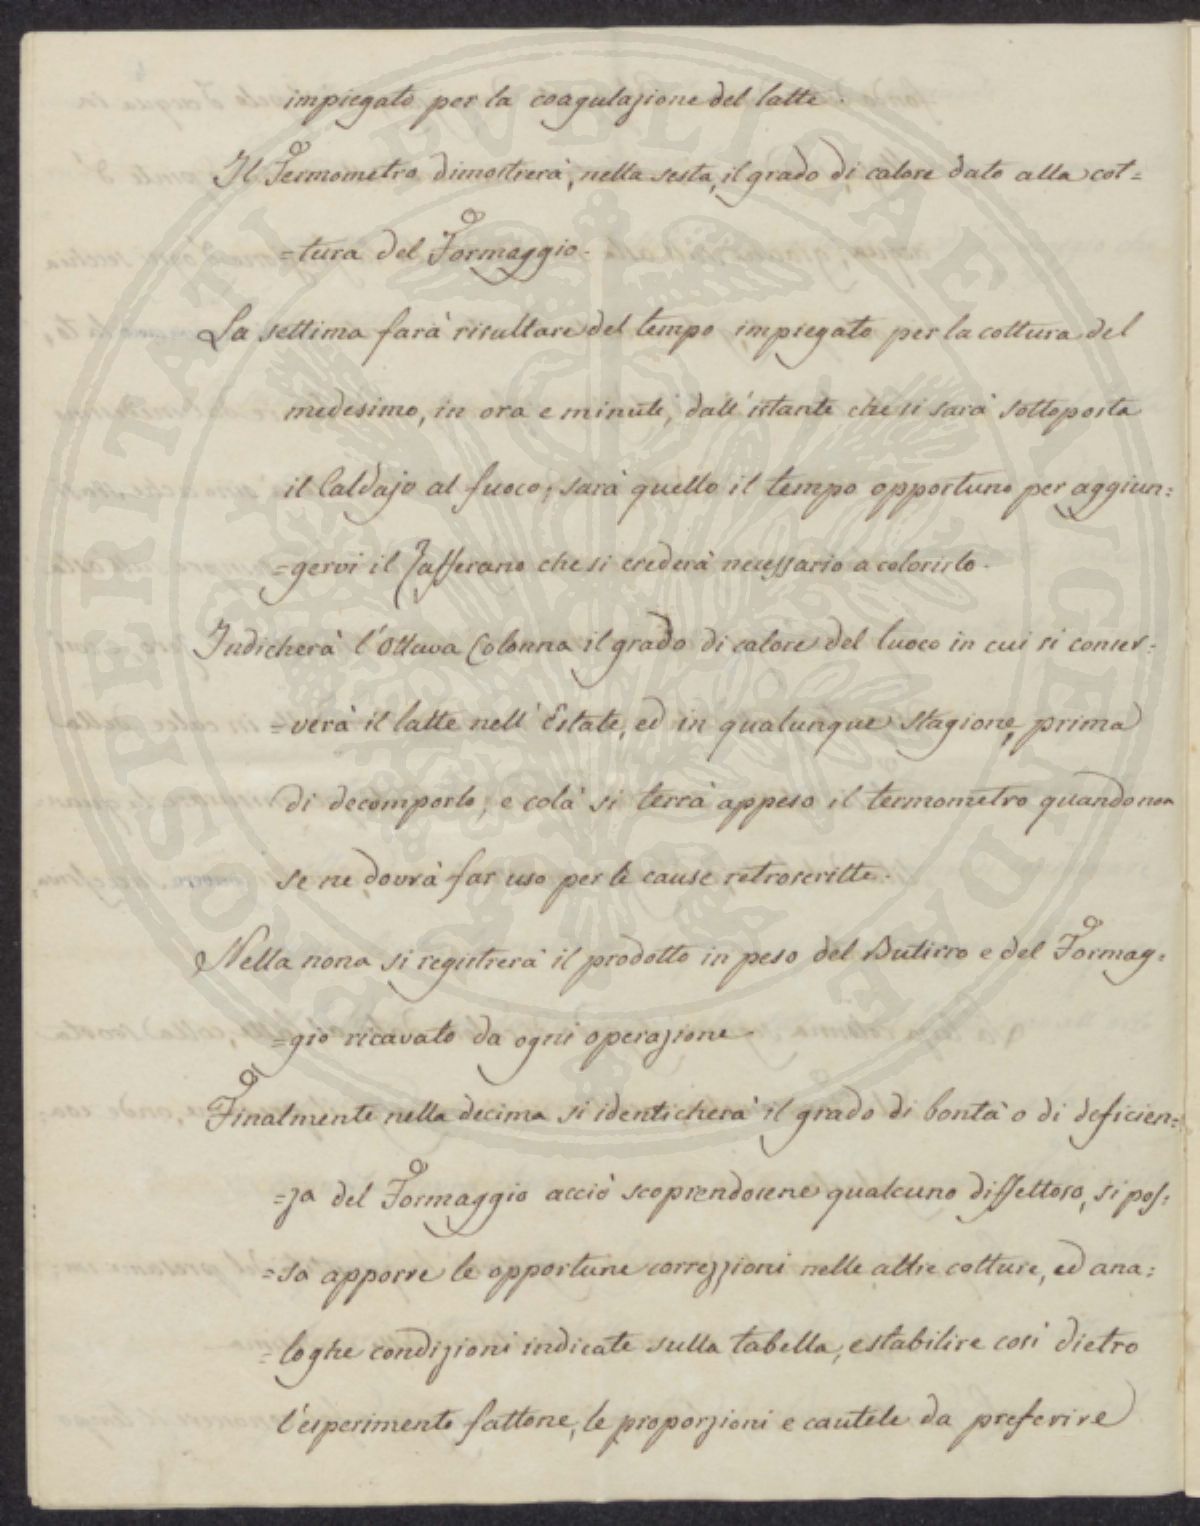 impiegato per la coagulazione del latte.
Il Termometro dimostrerà, nella sesta, il grado di calore dato alla cot=
=tura del Formaggio.
La settima farà risultare del tempo impiegato per la cottura del
medesimo, in ora e minuti, dall'istante che si sarà sottoposta
il Caldajo al fuoco; sarà quello il tempo opportuno per aggiun=
=gervi il Zafferano che si crederà necessario a colorirlo.
Indicherà l'Ottava Colonna il grado di calore del luoco in cui si conser=
=verà il latte nell'Estate, ed in qualunque stagione, prima
di decomporlo, e colà si terrà appeso il termometro quando non
se ne dovrà far uso per le cause retroscritte.
Nella nona si registrerà il prodotto in peso del Butirro e del Formag=
=gio ricavato da ogni operazione.
Finalmente nella decima si identicherà il grado di bontà o di deficien=
=za del Formaggio acciò scoprendosene qualcuno diffettoso, si pos=
=sa apporre le opportune correzzioni nelle altre cotture, ed ana=
=loghe condizioni indicate sulla tabella, e stabilire così dietro
l'esperimento fattone, le proporzioni e cautele da preferire
PROSPERITATI PUBLICAE AUGENDAE